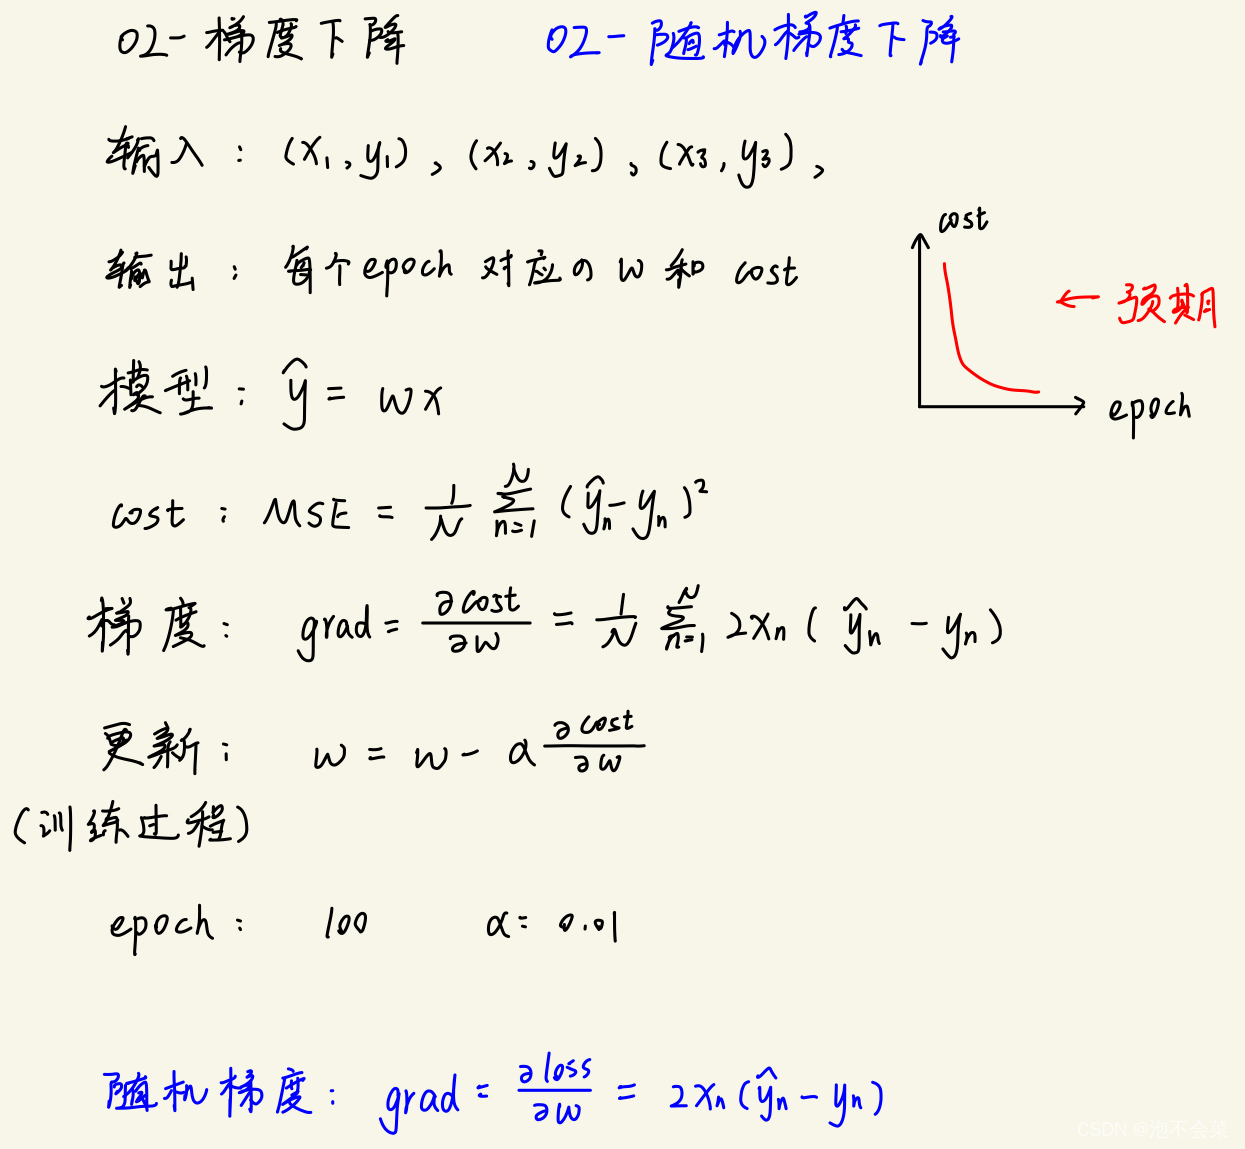 02-梯度下降 02-随机梯度下降
输入：(x₁,y₁), (x₂,y₂), (x₃,y₃),
输出：每个epoch 对应の w 和 cost
cost
← 预期
epoch
模型：ŷ = wx
cost：MSE = 1/N Σₙ₌₁ᴺ (ŷₙ-yₙ)²
梯度：grad = ∂cost/∂w = 1/N Σₙ₌₁ᴺ 2xₙ(ŷₙ - yₙ)
更新：w = w - α ∂cost/∂w
(训练过程)
epoch： 100 α = 0.01
随机梯度：grad = ∂loss/∂w = 2xₙ(ŷₙ - yₙ)
CSDN @泡不会菜